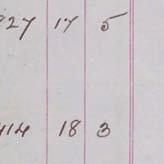 827 17 5
414 18 3